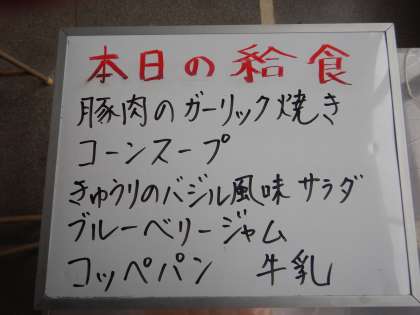 本日の給食
豚肉のガーリック焼き
コーンスープ
きゅうりのバジル風味サラダ
ブルーベリージャム
コッペパン 牛乳